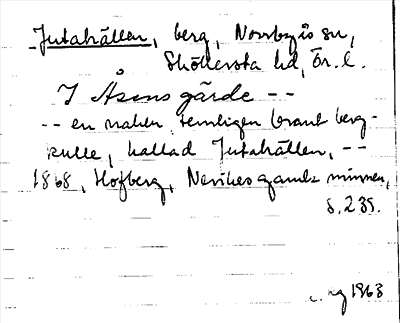 Jutahällen, berg, Norrbyås sn,
Sköllersta hd, Ör. l.
I Åsens gärde --
-- en naken, temligen brant berg-
kulle, kallad Jutahällen, --
1868, Hofberg, Nerikes gamla minnen,
s. 235.
1963